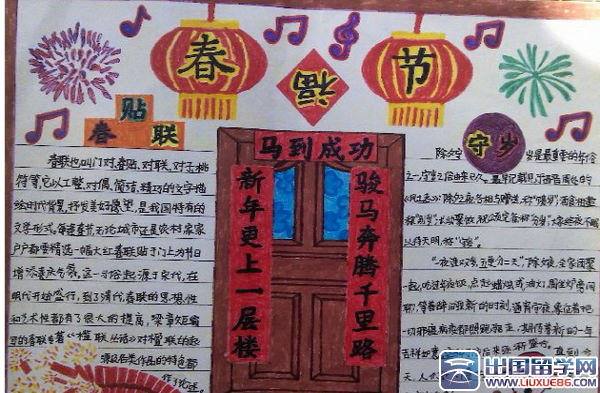 春
福
节
贴
春联
守岁
马到成功
骏马奔腾千里路
新年更上一层楼
春联也叫门对、春贴、对联、对子,桃
符等,它以工整、对偶、简洁、精巧的文字描
绘时代背景,抒发美好愿望,是我国特有的
文学形式。每逢春节,无论城市还是农村,家家
户户都要精选一幅大红春联贴于门上,为节日
增添喜庆气氛。这一习俗起源于宋代,在
明代开始盛行,到了清代,春联的思想性
和艺术性都有了很大的提高,梁章钜编
写的春联专著《楹联丛话》对楹联的起
源及各类作品的特色都
作了论述。
除夕守岁是最重要的年俗
之一,守岁之俗由来已久。最早记载见于西晋周处的
待天明,称“守岁”。
“一夜连双岁,五更分二天”,除夕夜,全家团聚
一起,吃过年夜饭,点起蜡烛或油灯,围坐炉旁闲
聊,等着辞旧迎新的时刻,通宵守夜,象征着把
一切邪瘟病疫都照跑驱走,期待着新的一年
吉祥如意
天,人
出国留学网
www.liuxue86.com